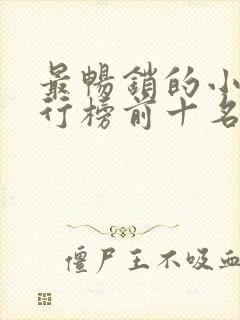 最暢銷的小
行榜前十名
僵尸王不吸血